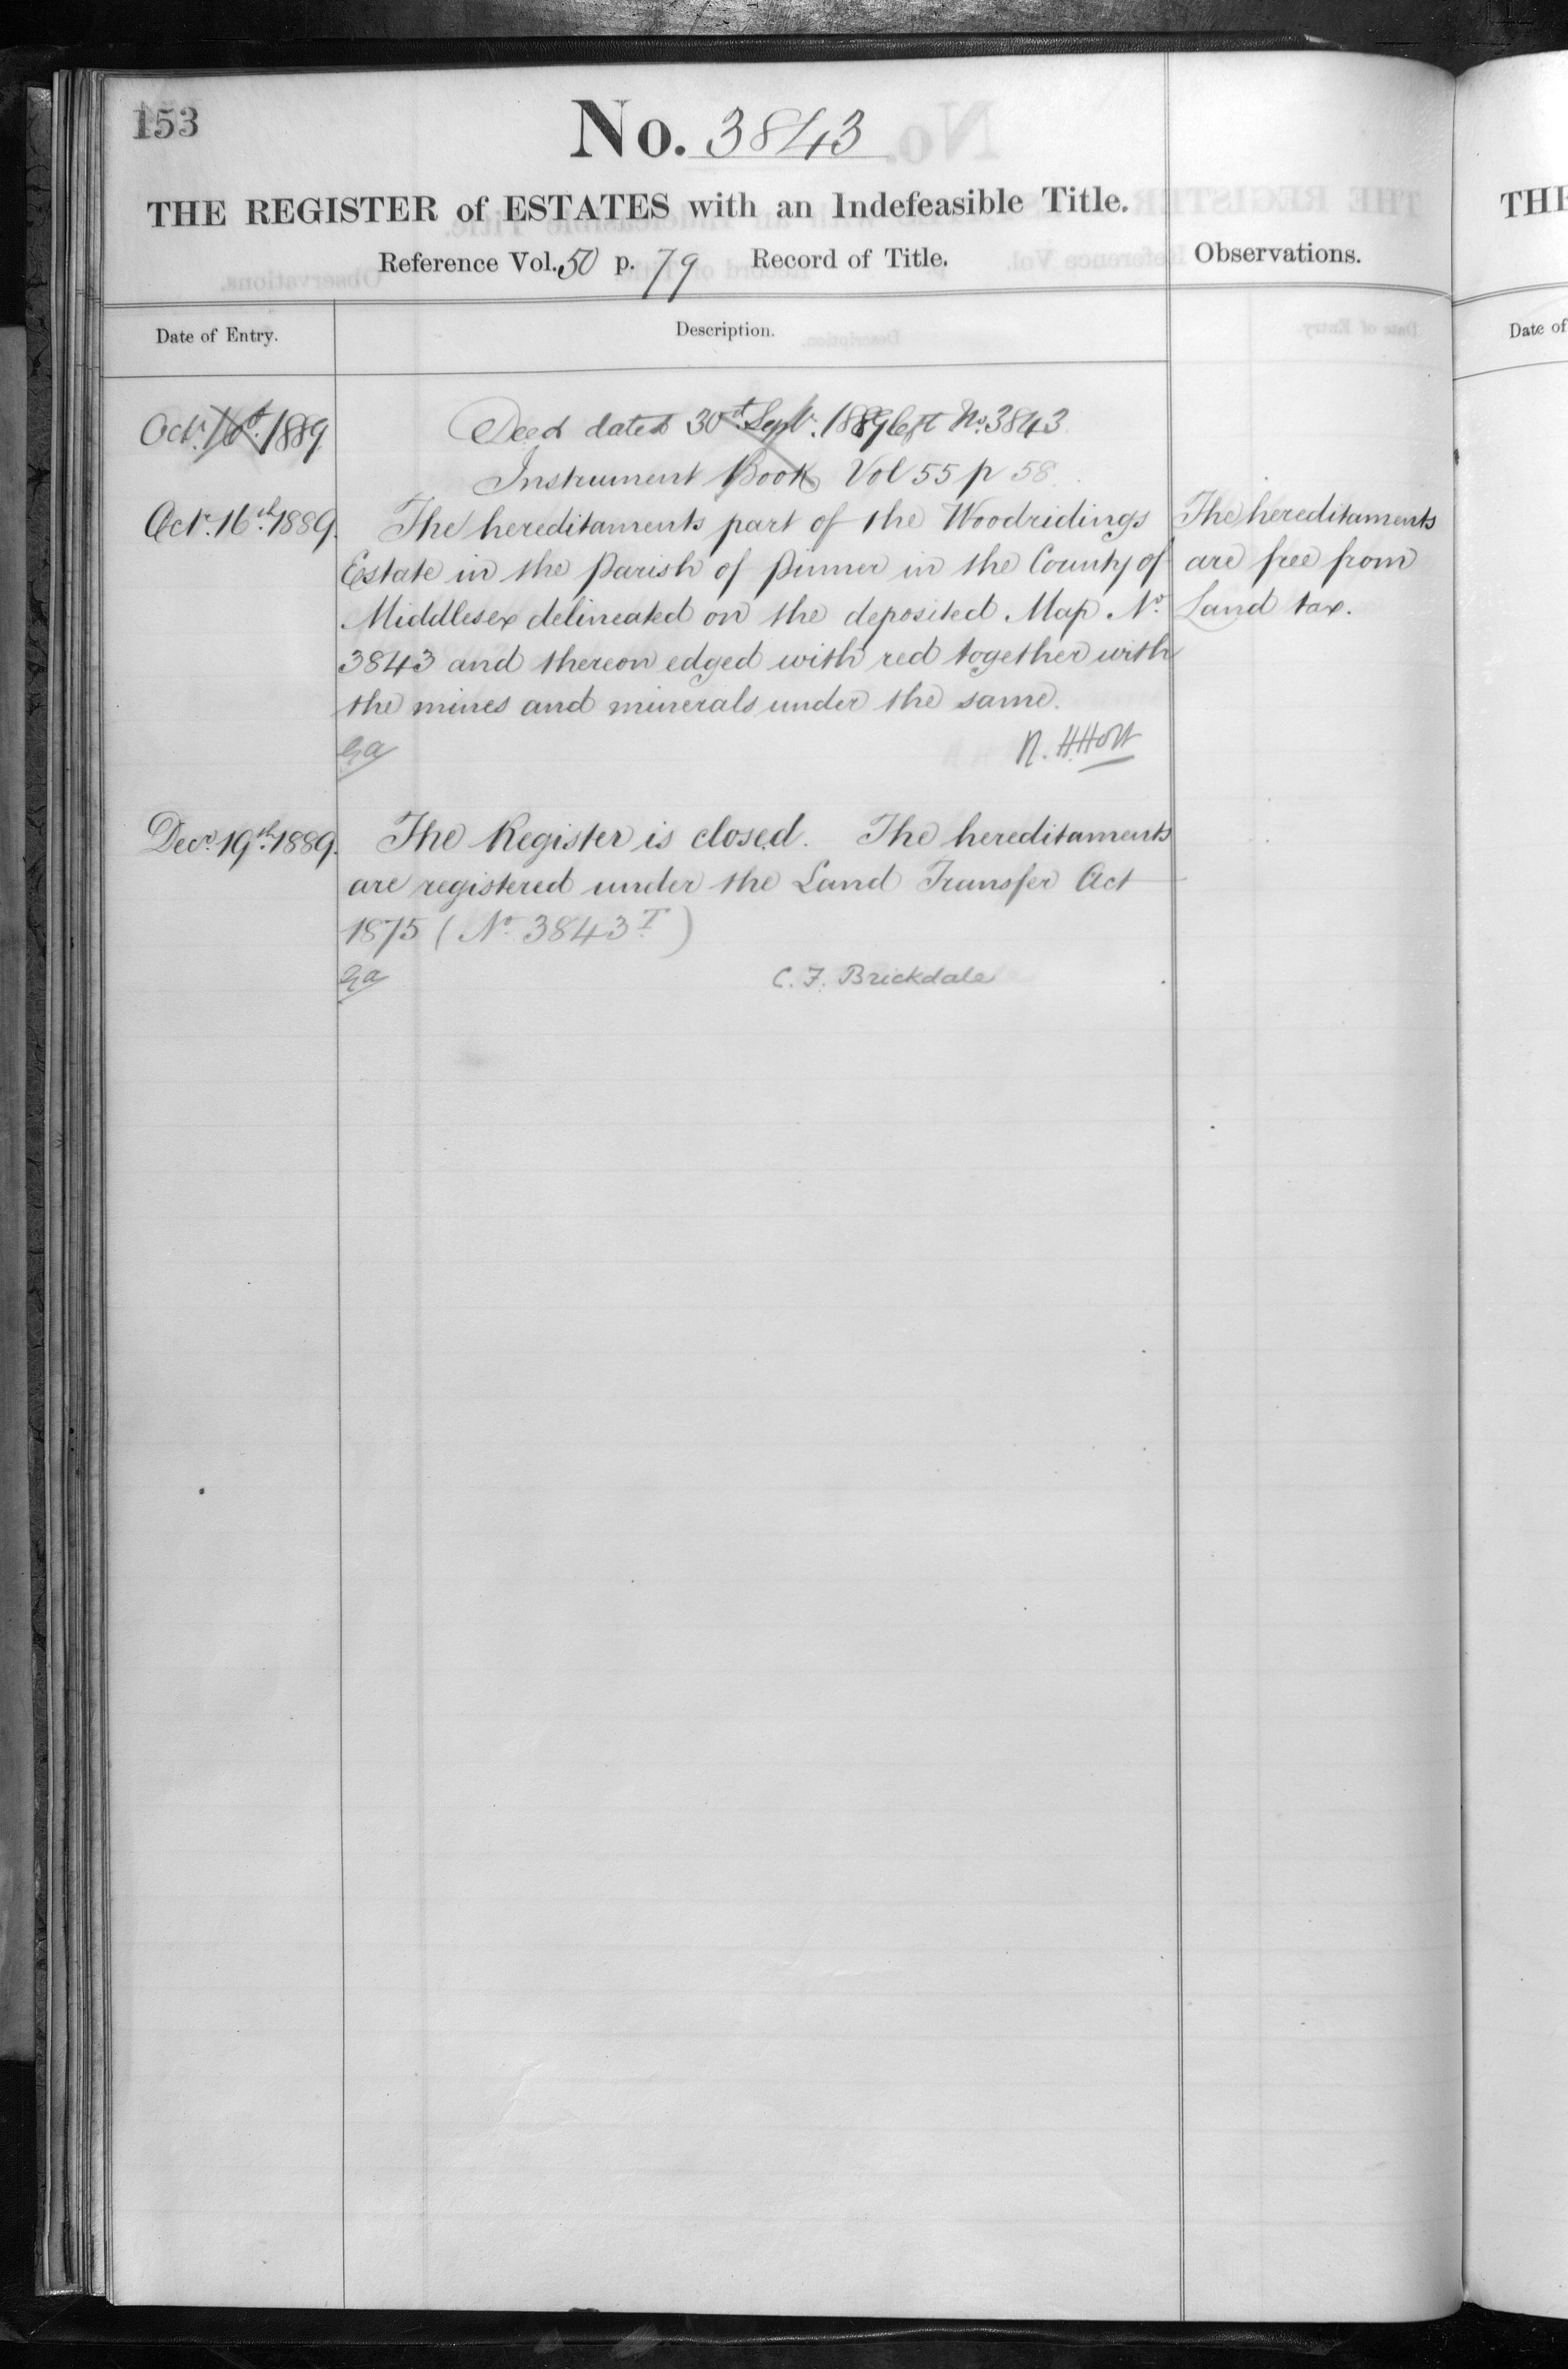 153
No. 3843
THE REGISTER of ESTATES with an Indefeasible Title.
Reference Vol. 50 p. 79 Record of Title.
Observations.
Date of Entry.
Description.
Octr. 16th. 1889
Deed dated 30th Septr. 1889 left No. 3843
Instrument Book Vol 55 p 58
Octr. 16th. 1889.
The hereditaments part of the Woodridings
Estate in the Parish of Pinner in the County of
Middlesex delineated on the deposited Map No.
3843 and thereon edged with red together with
the mines and minerals under the same.
The hereditaments
are free from
Land tax.
R. H. Holt
Decr. 19th. 1889.
The Register is closed. The hereditaments
are registered under the Land Transfer Act
1875 (No. 3843T)
C. F. Brickdale
THE
Date of